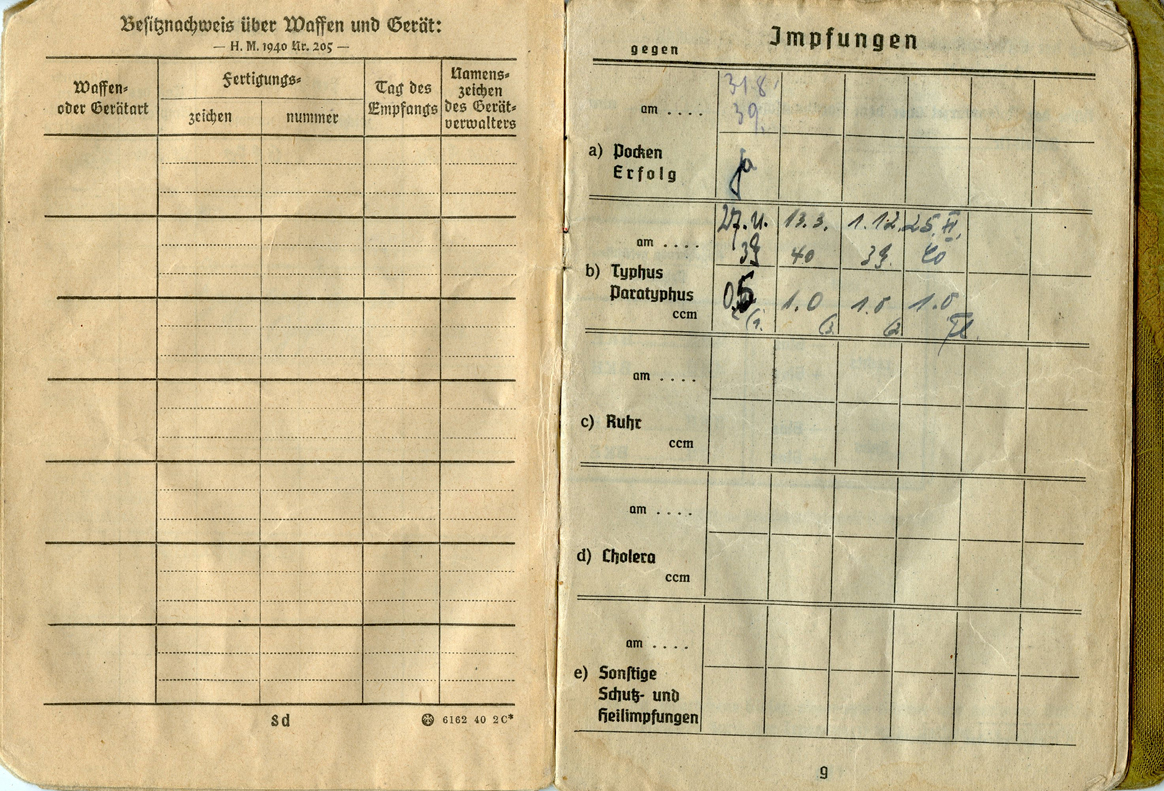 Besitznachweis über Waffen und Gerät:
— H. M. 1940 Nr. 205 —
Waffen-
oder Gerätart
Fertigungs-
zeichen
nummer
Tag des
Empfangs
Namens-
zeichen
des Gerät-
verwalters
8d
6162 40 2C*
Impfungen
gegen
am . . . .
31.8.
39.
a) Pocken
Erfolg
ja
am . . . .
27. 13.3. 1.12. 25.II.
39 40 39. 40
b) Typhus
Paratyphus
ccm
0,5 1.0 1.0 1.0
(1. (3. (2.
am . . . .
c) Ruhr
ccm
am . . . .
d) Cholera
ccm
am . . . .
e) Sonstige
Schutz- und
Heilimpfungen
9